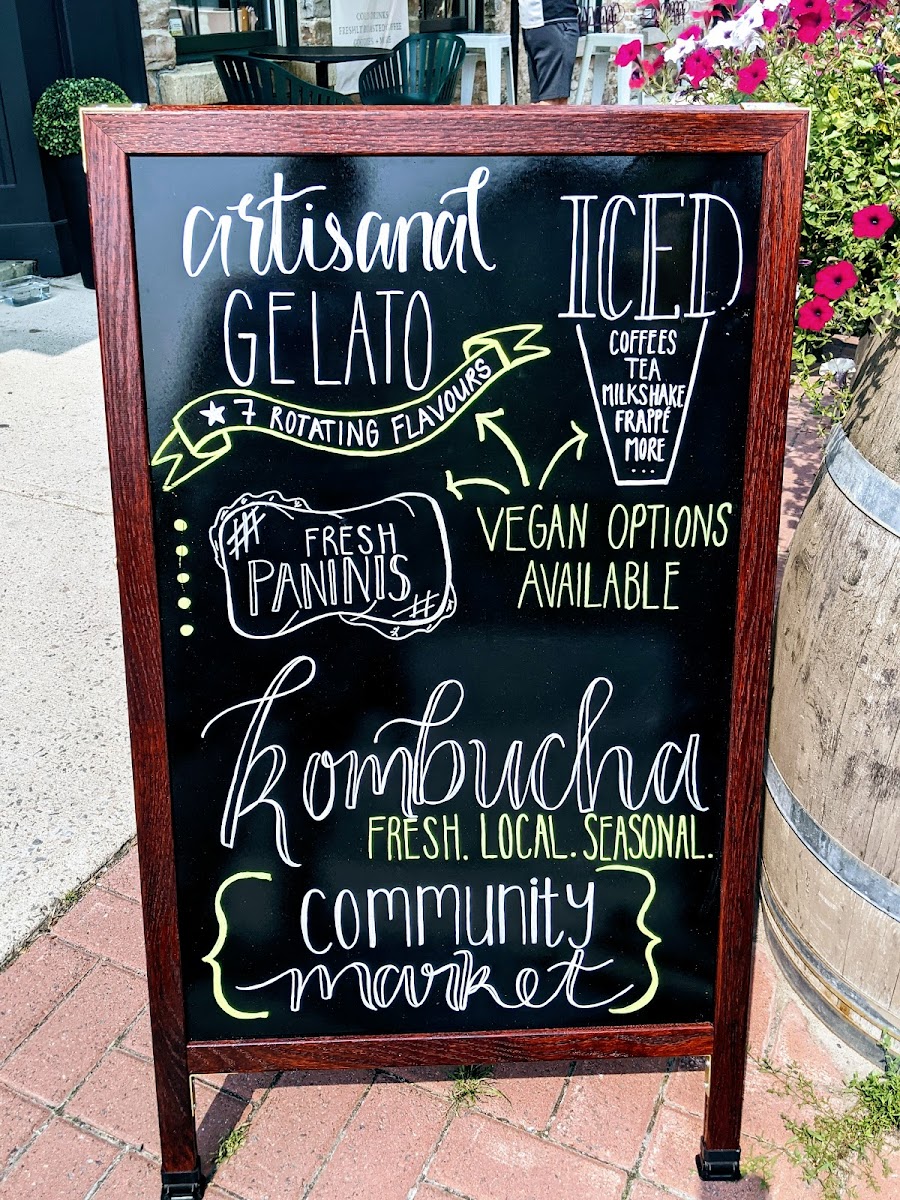 COLD DRINKS
FRESHLY ROASTED COFFEE
artisanal
GELATO
7 ROTATING FLAVOURS
ICED
COFFEES
TEA
MILKSHAKE
FRAPPÉ
MORE
...
VEGAN OPTIONS
AVAILABLE
FRESH
PANINIS
kombucha
FRESH. LOCAL. SEASONAL.
community
market